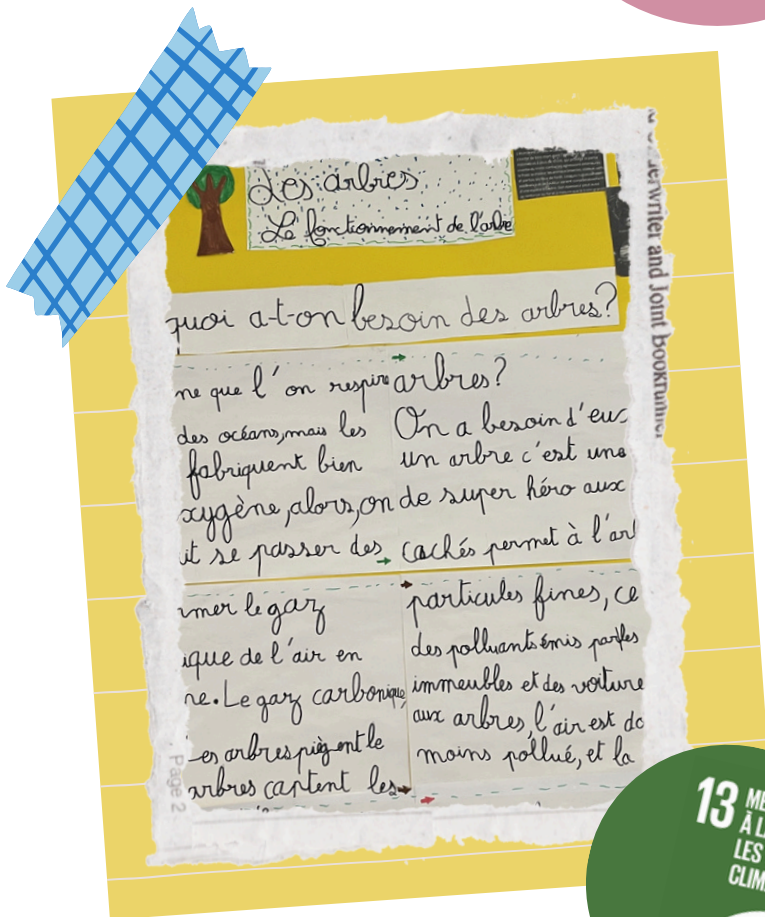 Les arbres
Le fonctionnement de l'arbre
quoi a-t-on besoin des arbres?
ne que l'on respire
des océans, mais les
fabriquent bien
xygène, alors, on
it se passer des
arbres?
On a besoin d'eux
un arbre c'est une
de super héro aux
cachés permet à l'arb
mer le gaz
ique de l'air en
ne. Le gaz carbonique,
Les arbres piègent le
arbres captent les
particules fines, ce
des polluants émis par les
immeubles et des voiture
aux arbres, l'air est do
moins pollué, et la
erwriter and Joint Bookrunner
Page 2
13 ME
À LA
LES
CLIM